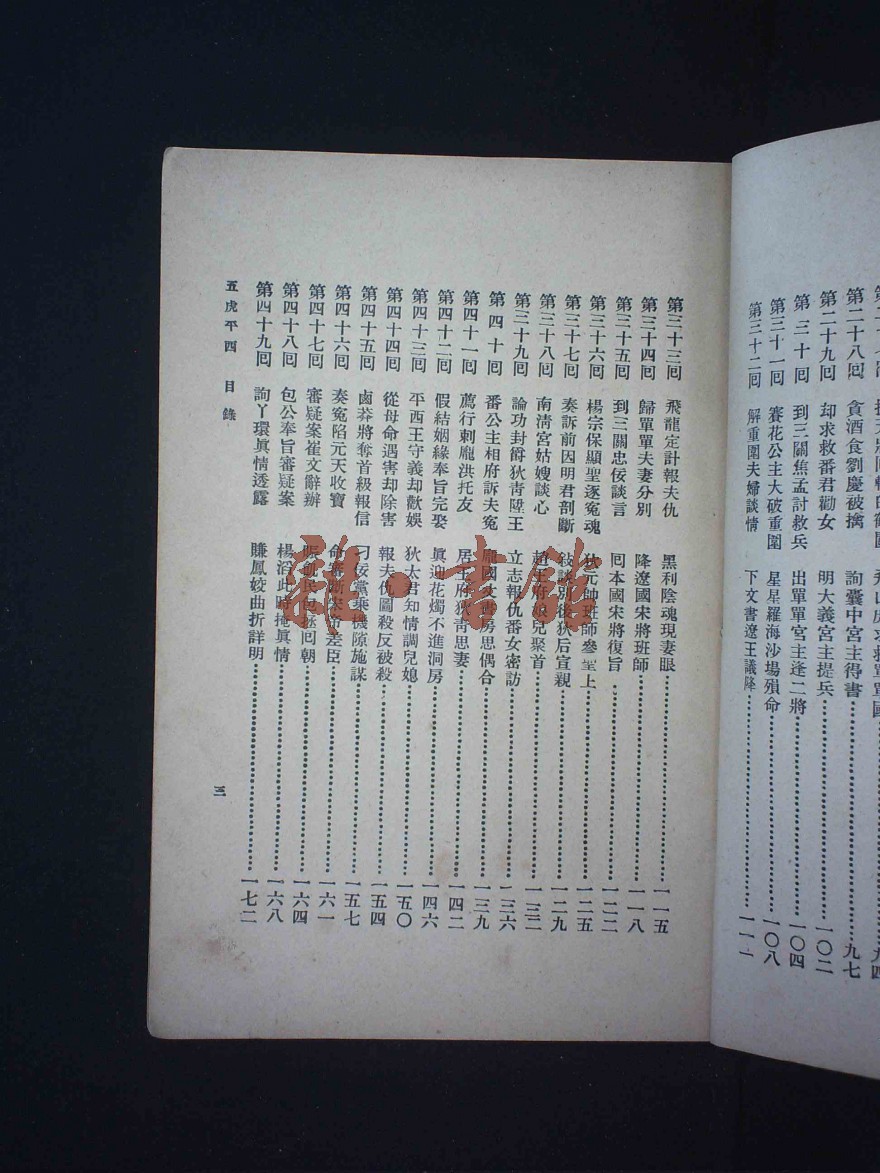 第二十八回 貪酒食劉慶被擒 詢囊中宮主得書 九七
第二十九回 却求救番君勸女 明大義宮主提兵 一〇二
第三十回 到三關焦孟討救兵 出單單宮主逢二將 一〇四
第三十一回 賽花公主大破重圍 星星羅海沙場殞命 一〇八
第三十二回 解重圍夫婦談情 下文書遼王議降 一一一
第三十三囘 飛龍定計報夫仇 黑利陰魂現妻眼 一一五
第三十四囘 歸單單夫妻分別 降遼國宋將班師 一一八
第三十五囘 到三關忠佞談言 囘本國宋將復旨 一二二
第三十六囘 楊宗保顯聖逐冤魂 狄元帥班師參堂上 一二五
第三十七囘 奏訴前因明君剖斷 敍談別後狄后宣親 一二九
第三十八囘 南清宮姑嫂談心 趙王府娘兒聚首 一三二
第三十九囘 論功封爵狄青陞王 立志報仇番女密訪 一三六
第四十囘 番公主相府訴夫冤 龐國丈書房思偶合 一三九
第四十一囘 薦行刺龐洪托友 居王府狄青思妻 一四二
第四十二囘 假結姻緣奉旨完娶 眞迎花燭不進洞房 一四六
第四十三囘 平西王守義却歡娛 狄太君知情調兒媳 一五〇
第四十四囘 從母命遇害却除害 報夫仇圖殺反被殺 一五四
第四十五囘 鹵莽將奪首級報信 刁佞黨乘機隙施謀 一五七
第四十六囘 奏冤陷元天收寶 命審斷宋 差臣 一六一
第四十七囘 審疑案崔文辭辦 賑飢民包拯囘朝 一六四
第四十八囘 包公奉旨審疑案 楊滔此時掩眞情 一六八
第四十九囘 詢丫環眞情透露 賺鳳姣曲折詳明 一七二
五虎平西 目錄
三
雜·書館